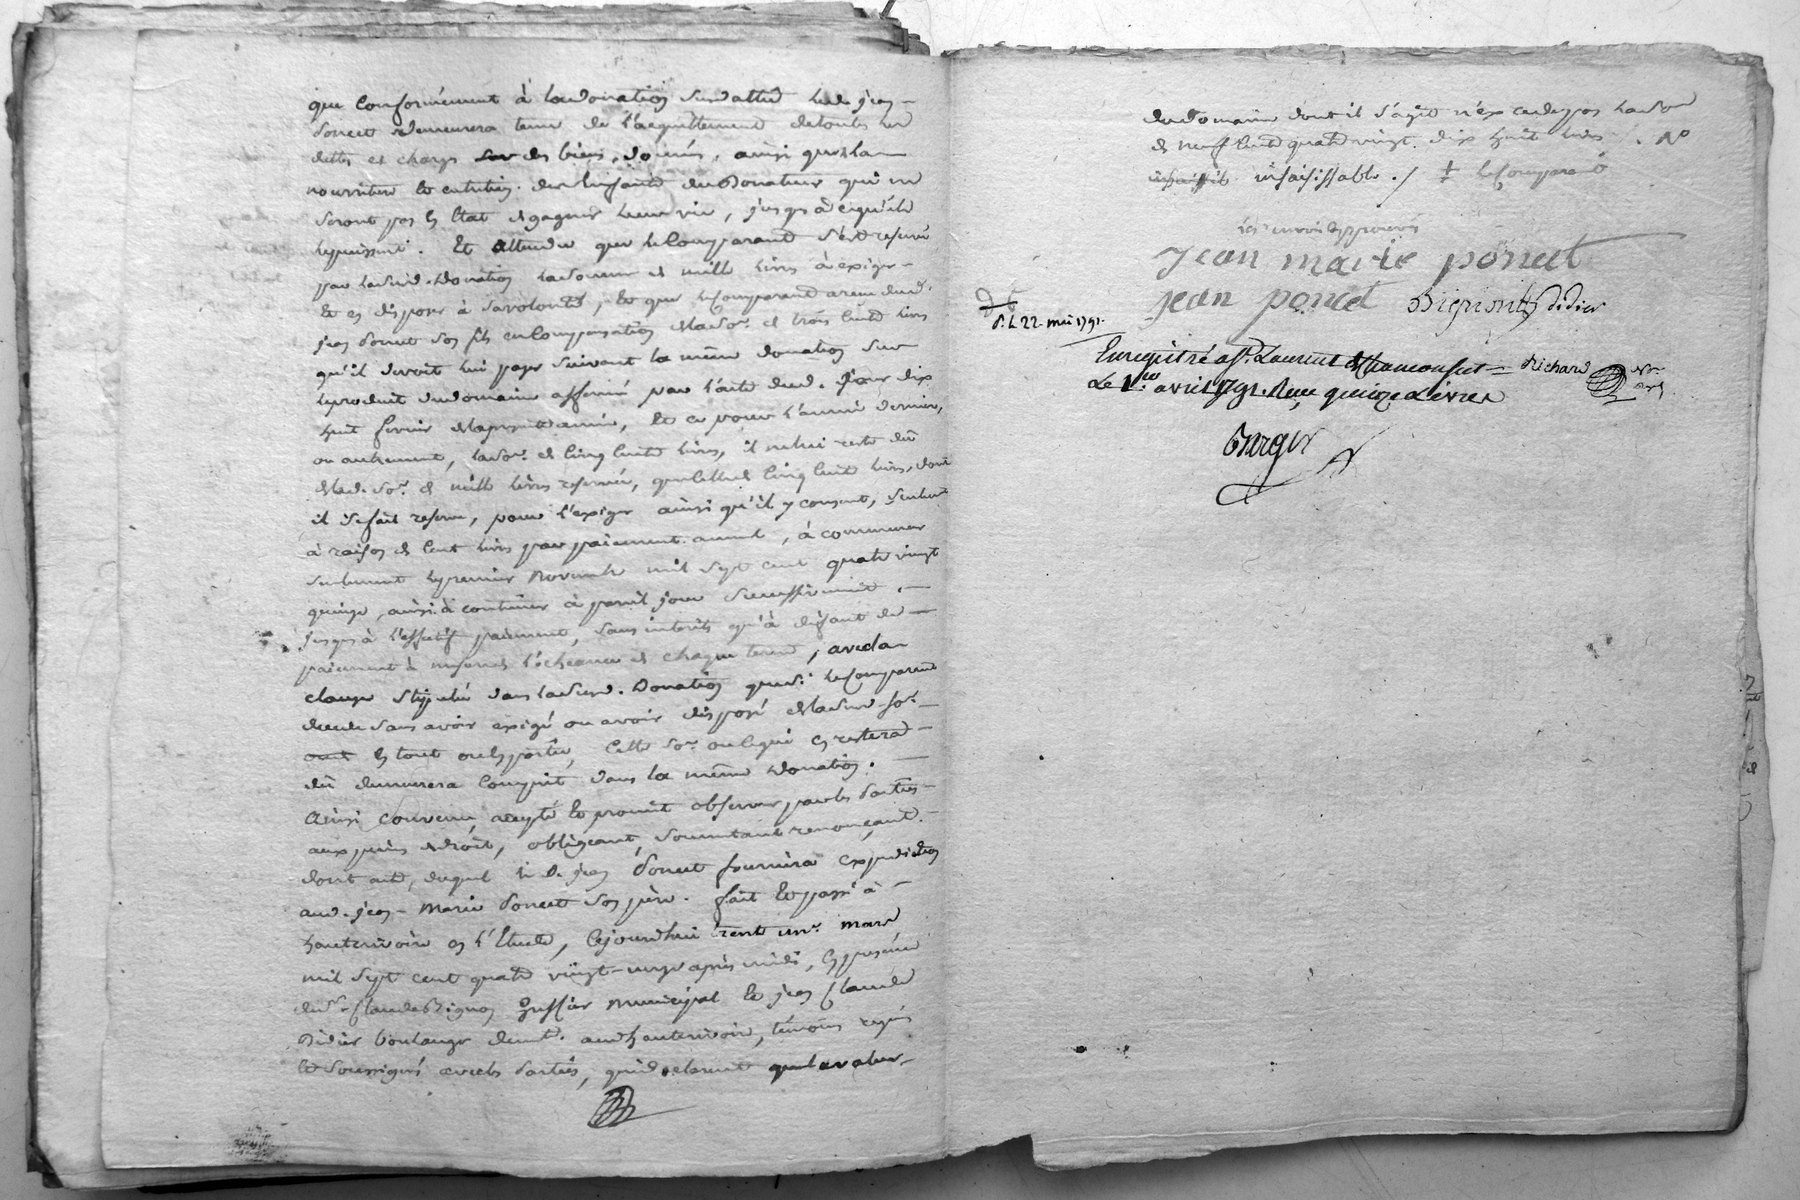 que conformément à la donation susdatté led. jean
Poncet demeurera tenu de l'acquittement de touts les
dettes et charges des biens donnés, ainsi que de la
nourriture et entretien des enfants du Donateur qui ne
seront pas en Etat de gagner leur vie, jusqu'à ce qu'ils
le puissent. Et attendu que le Comparant s'est reservé
par lad. Donation la somme de mille livres à exiger
et en disposer à sa volonté, et que le Comparant a rendud.
jean Poncet son fils en Compensation de la so.e de trois cent livres
qu'il devoit lui payer suivant la même donation sur
le produit du domaine affermé par l'acte dud. jour dix
huit fevrier de la presente année, et ce pour l'année derniere,
ou autrement, la so.e de cinq cents livres, il ne lui reste dû
de lad. so.e de mille livres reservée, que celle de cinq cent livres, dont
il se fait reserve, pour l'exiger ainsi qu'il y consent, seulement
à raison de cent livres par paiement annuel, à commencer
seulement le premier Novembre mil sept cent quatre vingt
quinze, ainsi à continuer à pareil jour successivement
jusqu'à l'effectif paiement, sans interets qu'à défaut de
paiement à mesure de l'écheance de chaque terme, avec la
clause stipulée dans la susd. Donation que si le Comparant
decede sans avoir exigé ou avoir disposé de la susd. so.e
en tout ou en partie, cette so.e ou ce qui en restera
dû demeurera compris dans la même donation.
Ainsi convenu, accepté et promit observer par les Parties
aux peines de droit, obligeant, soumettant renonçant
dont acte, duquel le d. jean Poncet fournira expedition
aud. jean-Marie Poncet son père. fait et passé à
hauterivoire en l'Etude, cejourdhui trente un.e mars
mil sept cent quatre vingt-onze après midi, en presence
du s.r Claude Bignon huissier Municipal et jean Claude
Didier boulanger demt. aud hauterivoire, témoins requis
et soussignés avec les Parties, qui declarent que la valeur
du domaine dont il s'agit n'excede pas la so.e
de neuf cent quatre vingt dix huit livres
insaisissable . / ‡ le Comparant
les renvois approuvés
Jean marie poncet
jean poncet Didier
d. L 22. mai 1791.
Enregistré a St. Laurent de Chamousset Richard
Le 1er avril 1791. Reçu quinze Livres